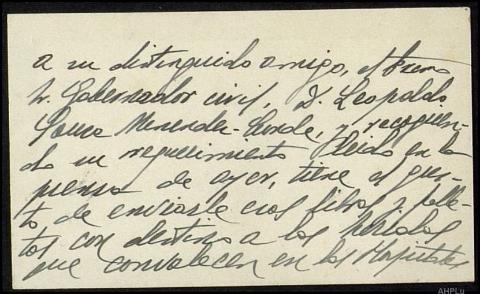 a su distinguido amigo, el Excmo
Sr. Gobernador civil, D. Leopoldo
Sousa Menendez-Conde, y recogien-
do su requerimiento leido en la
prensa de ayer, tiene el gus-
to de enviarle esos libros y folle-
tos con destino a los heridos
que convalecen en los Hospitales
AHPLu